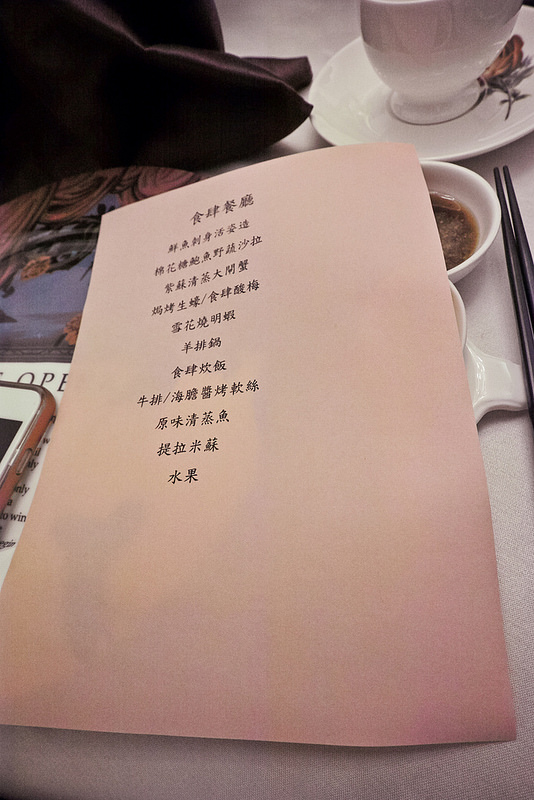 食肆餐廳
鮮魚刺身活姿造
棉花糖鮑魚野蔬沙拉
紫蘇清蒸大閘蟹
焗烤生蠔/食肆酸梅
雪花燒明蝦
羊排鍋
食肆炊飯
牛排/海膽醬烤軟絲
原味清蒸魚
提拉米蘇
水果
OPE
only
a
to win